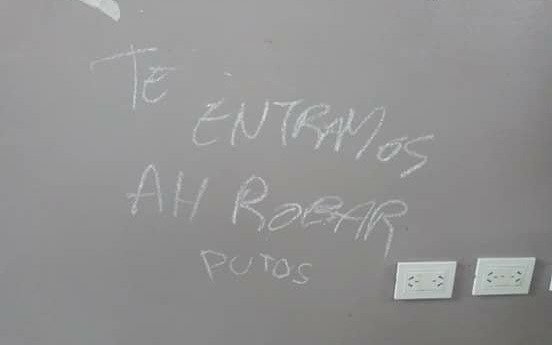 TE
ENTRAMOS
AH ROBAR
PUTOS